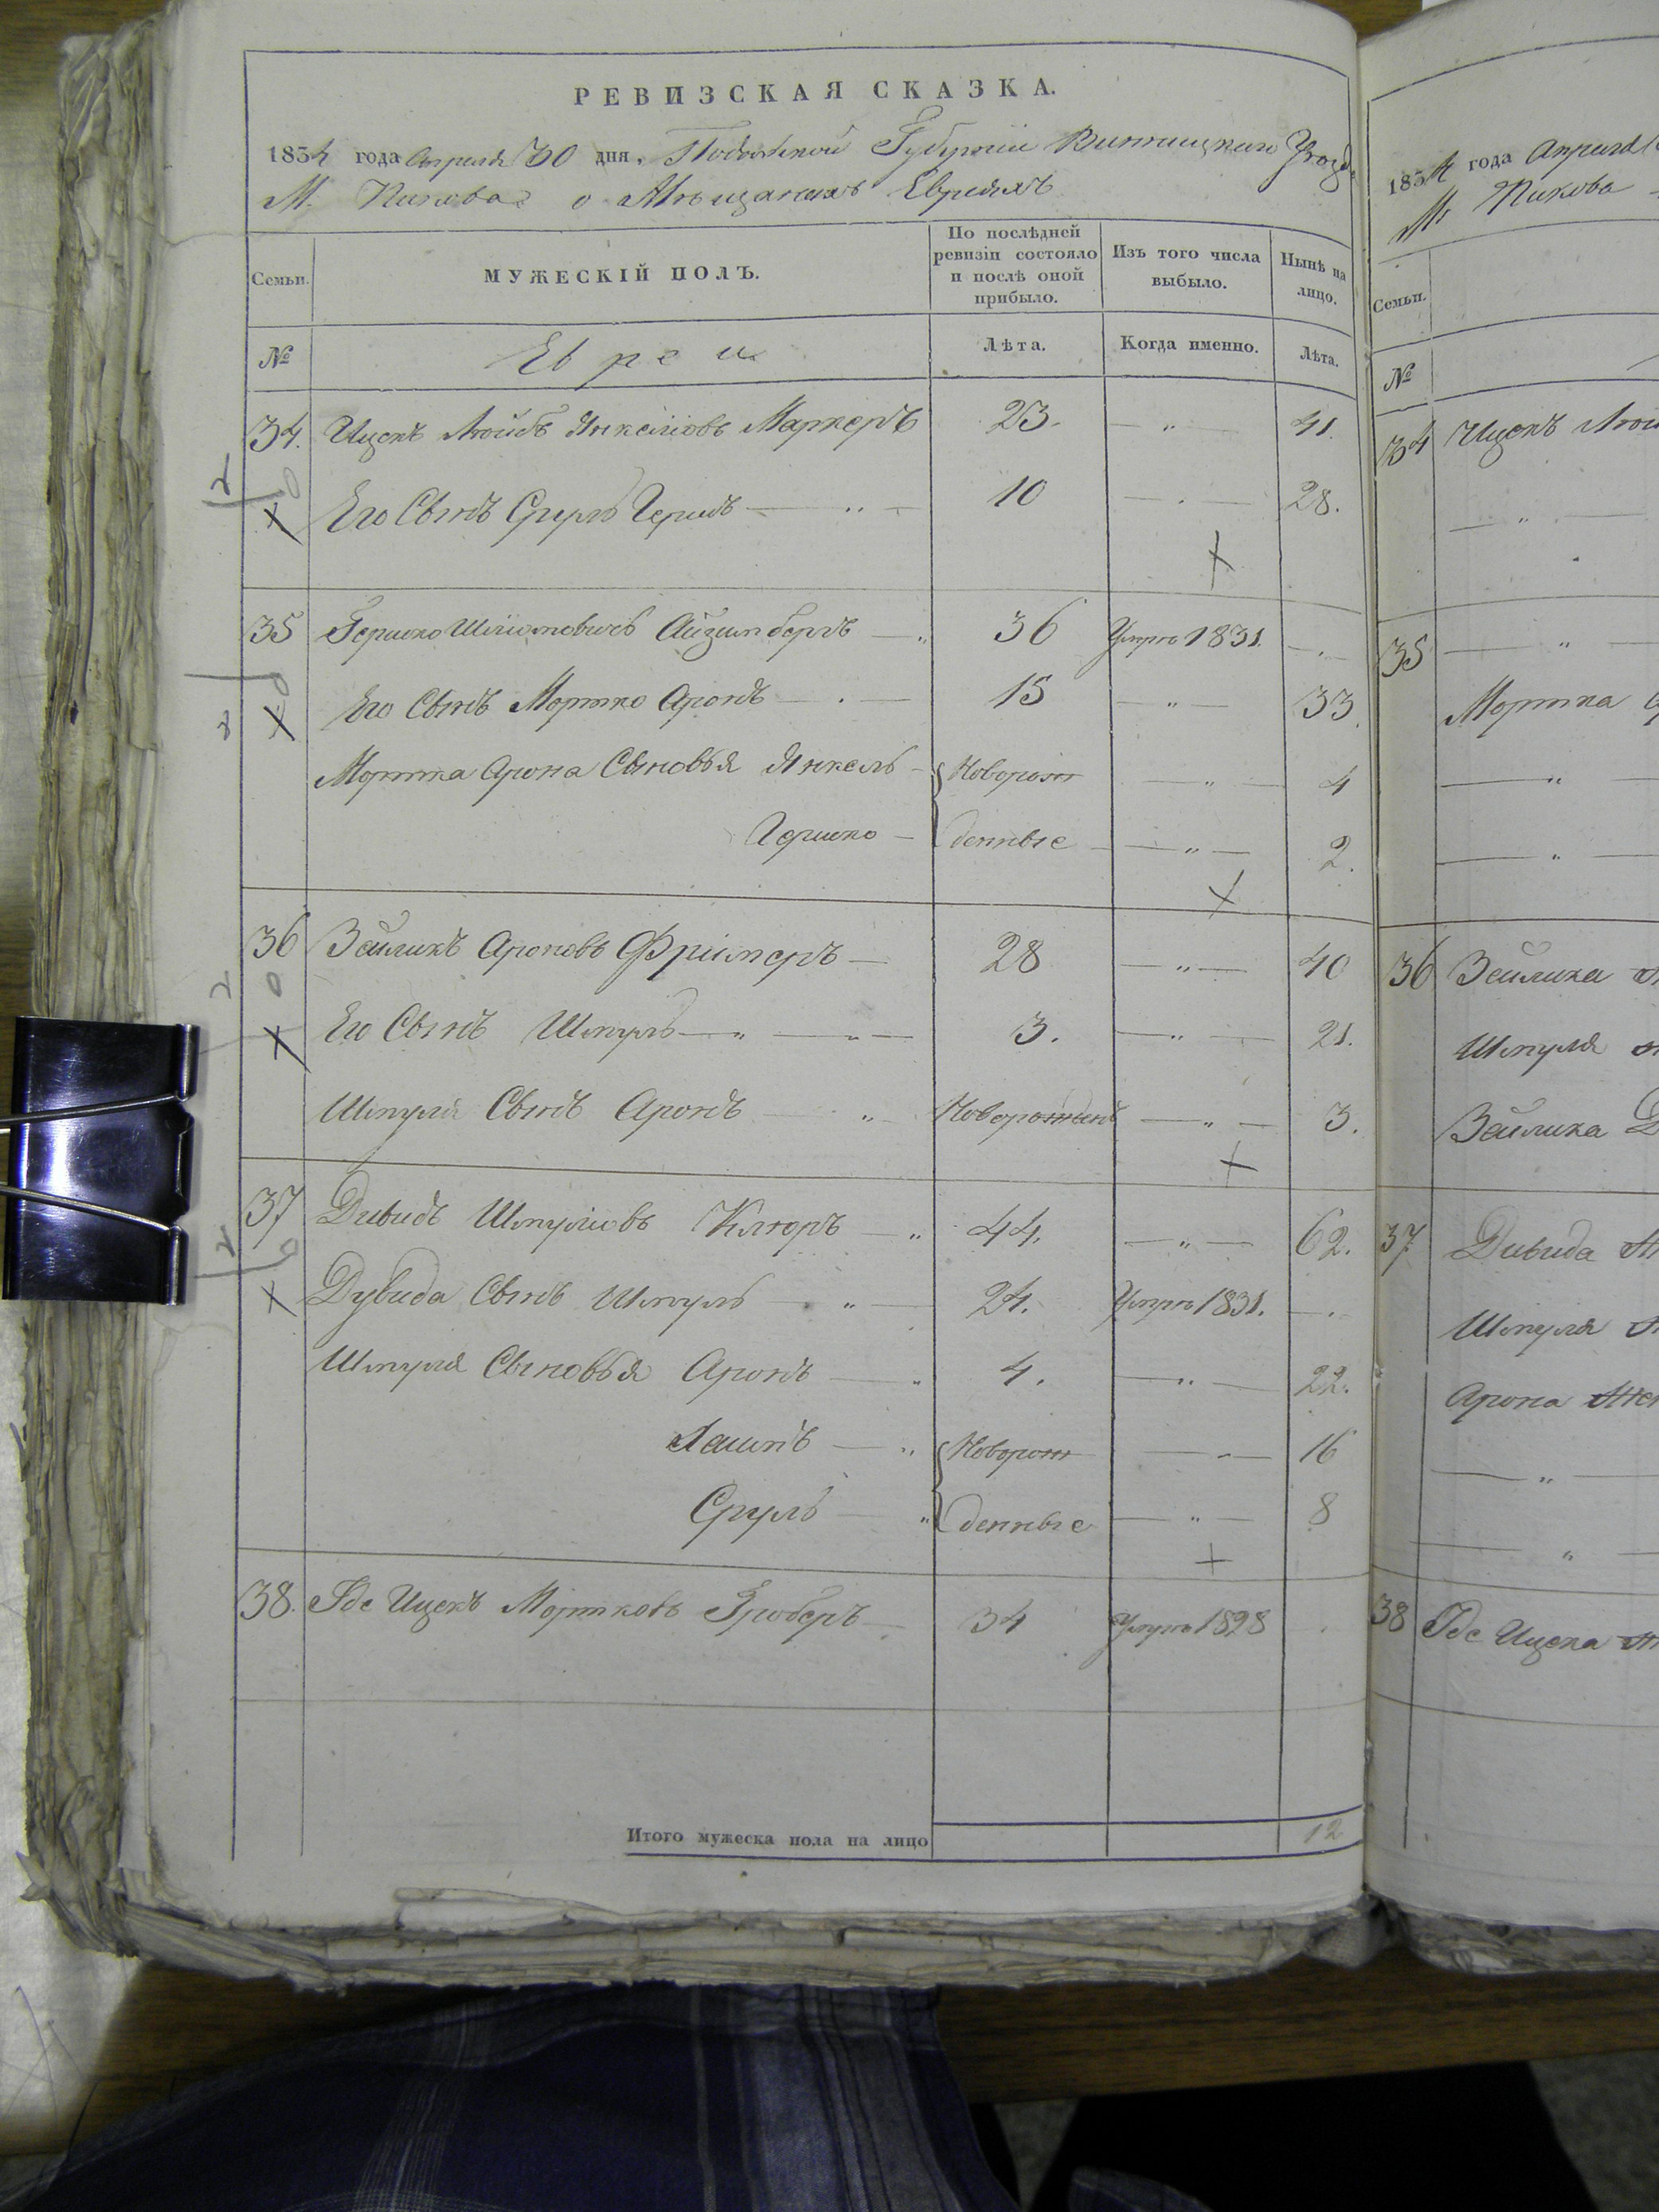 РЕВИЗСКАЯ СКАЗКА.
1834 года Апреля 30 дня, Подольской Губерніи Винницкаго Уезда
М. Пикова о Мѣщанахъ Евреяхъ
Семьи.
МУЖЕСКІЙ ПОЛЪ.
По послѣдней ревизіи состояло и послѣ оной прибыло.
Изъ того числа выбыло.
Нынѣ на лицо.
№ Евреи Лѣта. Когда именно. Лѣта.
34. Ицекъ Лейбъ Янкеліовъ Маркеръ 23. — " — 41.
Его Сынъ Сруль Гершъ — " — 10 — " — 28.
35 Гершко Шліомовичъ Айзинбергъ — " 36 Умръ 1831. — " —
Его Сынъ Мортко Аронъ — " — 15 — " — 33.
Мортка Арона Сыновья Янкель — Новорож — " — 4
Гершко — денные — " — 2.
36 Зейликъ Ароновъ Фрімеръ — 28 — " — 40
Его Сынъ Шмуль — " — 3. — " — 21.
Шмуля Сынъ Аронъ — " Новорожденъ — " — 3.
37 Дувидъ Шмуліовъ Кляоръ — " 44. — " — 62.
Дувида Сынъ Шмуль — " — 24. Умръ 1831. — " —
Шмуля Сыновья Аронъ — " 4. — " — 22.
Лашпъ — " Новорож — " — 16
Сруль — " денные — " — 8
38. Іосе Ицекъ Мортковъ Гроберъ — 34 Умръ 1828
Итого мужеска пола на лицо 12
1834 года Апреля
М. Пикова
Семьи.
№
34 Ицекъ
35
Мортка
36 Зейлика
Шмуля
Зейлика
37 Дувида
Шмуля
Арона
38 Іосе Ицека